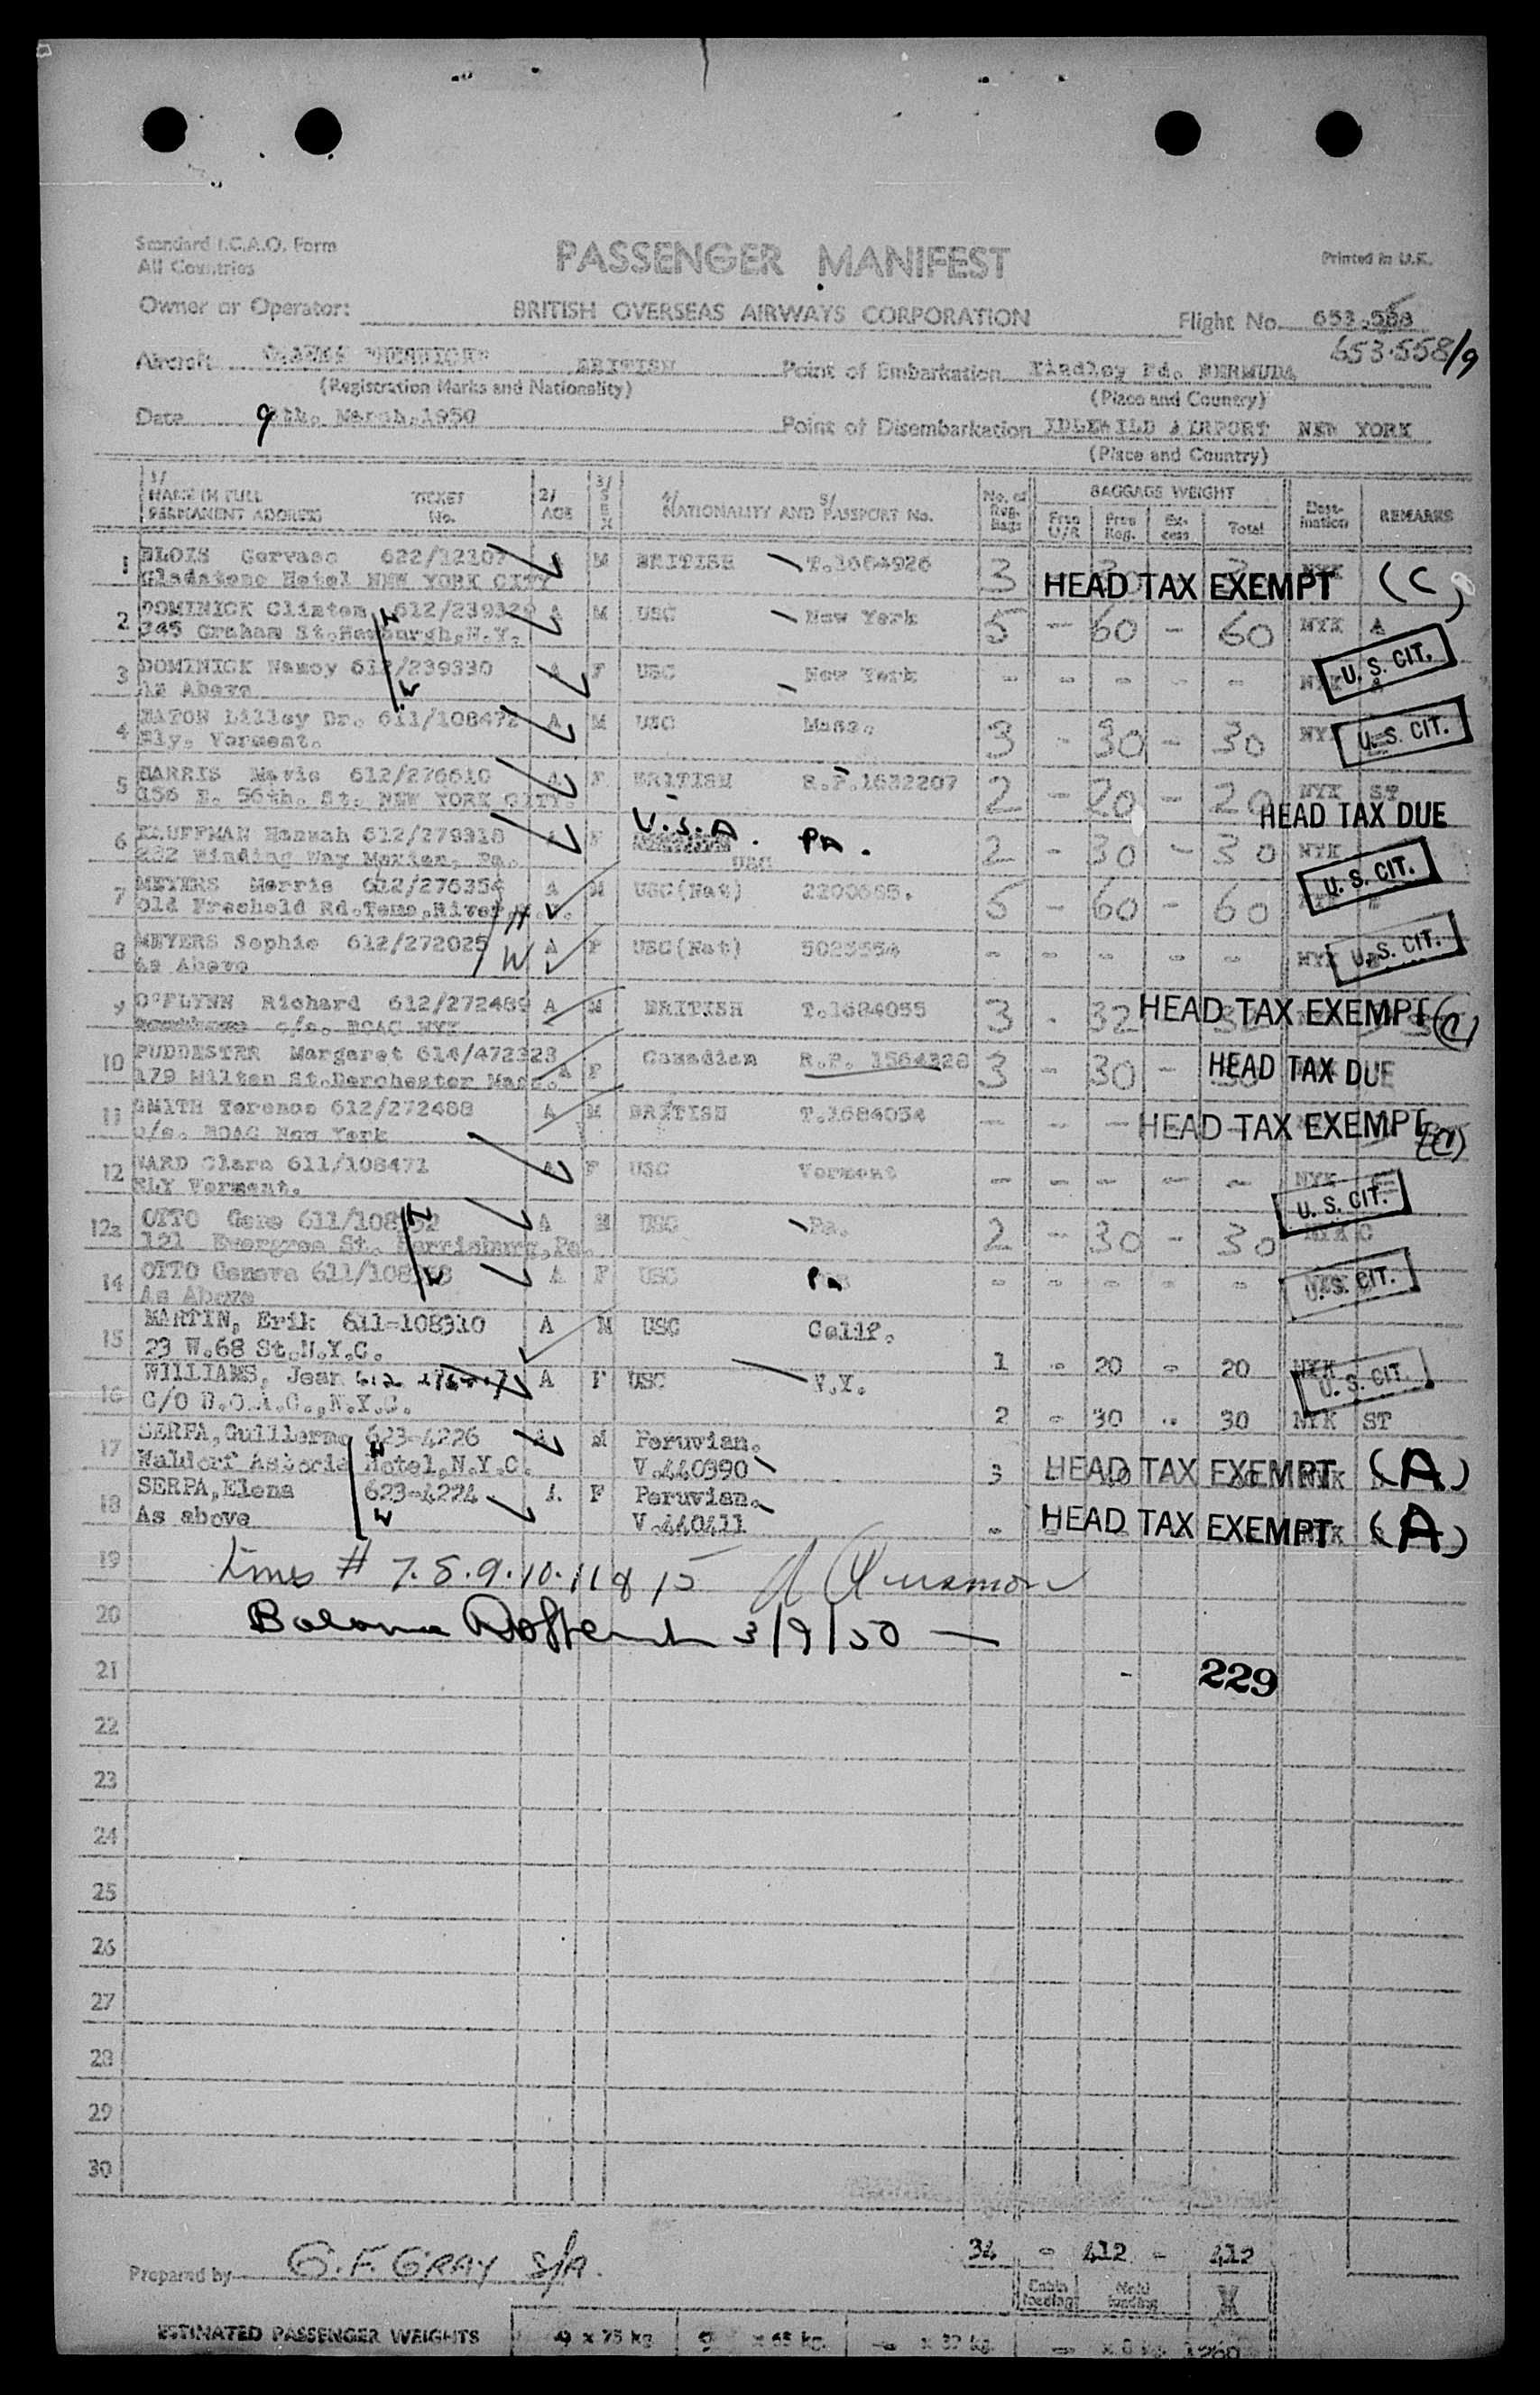 Standard I.C.A.O. Form
All Countries
PASSENGER MANIFEST
Printed in U.K.
Owner or Operator: BRITISH OVERSEAS AIRWAYS CORPORATION Flight No. 653.558
653.558/9
Aircraft BRITISH Point of Embarkation Kindley Fd. BERMUDA
(Registration Marks and Nationality) (Place and Country)
Date 9th. March.1950 Point of Disembarkation IDLEWILD AIRPORT NEW YORK
(Place and Country)
1/ NAME IN FULL PERMANENT ADDRESS TICKET No. 2/ AGE 3/ SEX 4/ NATIONALITY AND 5/ PASSPORT No. No. of Reg. Bags BAGGAGE WEIGHT Free U/R Free Reg. Excess Total Destination REMARKS
1 BLOIS Gervase 622/12107 A M BRITISH T.1684926 3 NYK
Gladstone Hotel NEW YORK CITY HEAD TAX EXEMPT (C)
2 DOMINICK Clinton 612/239329 A M USC New York 5 - 60 - 60 NYK A
345 Graham St. Newburgh, N.Y. H
3 DOMINICK Nancy 612/239330 A F USC New York - - - - - NYK A U.S. CIT.
As Above W
4 EATON Lilley Dr. 611/108472 A M USC Mass. 3 - 30 - 30 NYK U.S. CIT.
Ely, Vermont.
5 HARRIS Mavis 612/276610 A F BRITISH R.P.1632207 2 - 20 - 20 NYK ST
156 E. 56th. St. NEW YORK CITY. HEAD TAX DUE
6 KAUFFMAN Hannah 612/279318 A F U.S.A. USC PA. 2 - 30 - 30 NYK
282 Winding Way Merion, Pa. U.S. CIT.
7 MEYERS Morris 612/276354 A M USC(Nat) 2200665. 5 - 60 - 60
Old Freehold Rd. Toms, River, N.J. H
8 MEYERS Sophie 612/272025 A F USC(Nat) 5023554 - - - - - NYK U.S. CIT.
As Above W
9 O'FLYNN Richard 612/272489 A M BRITISH T.1684055 3 - 32 HEAD TAX EXEMPT (C)
c/o. BOAC NYK
10 PUDDESTER Margaret 614/472323 A F Canadian R.P. 1564328 3 - 30 - 30 HEAD TAX DUE
179 Hilton St. Dorchester Mass.
11 SMITH Terence 612/272488 A M BRITISH T.1684054 - - - HEAD TAX EXEMPT (C)
c/o. BOAC New York
12 WARD Clara 611/108471 A F USC Vermont - - - - - NYK
ELY Vermont. U.S. CIT.
12a OTTO Gene A M USC Pa. 2 - 30 - 30 NYK C
121 Evergreen St. Harrisburg, Pa. H
14 OTTO Geneva A F USC Pa - - - - - U.S. CIT.
As Above W
15 MARTIN, Erik 611-108310 A M USC Calif.
23 W.68 St.N.Y.C. 1 - 20 - 20 NYK
16 WILLIAMS, Jean A F USC N.Y. U.S. CIT.
C/O B.O.A.C.,N.Y.C. 2 - 30 - 30 NYK ST
17 SERPA, Guillermo 623-4226 A M Peruvian.
Waldorf Astoria Hotel, N.Y.C. H V.440390 3 HEAD TAX EXEMPT NYK (A)
18 SERPA, Elena 623-4224 A F Peruvian.
As above W V.440411 - HEAD TAX EXEMPT NYK (A)
19 Lines # 7.8.9.10.11 & 15
20 3/9/50
21 - 229
22
23
24
25
26
27
28
29
30
34 - 412 - 412
Prepared by G.F. GRAY S/A.
Cabin loading Hold loading
ESTIMATED PASSENGER WEIGHTS 9 x 75 kg 9 x 65 kg. - x 32 kg. - x 8 kg. 1260